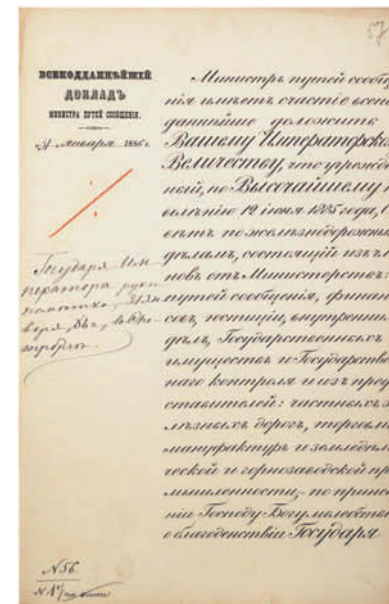 57
ВСЕПОДДАННѢЙШІЙ
ДОКЛАДЪ
МИНИСТРА ПУТЕЙ СООБЩЕНІЯ.
31 января 1886 г.
Министръ путей сообще
нія имѣетъ счастіе всепод
даннѣйше доложить
Вашему Императорско
Величеству, что учрежден
ный, по Высочайшему п
велѣнію 12 іюня 1885 года, С
вѣтъ по желѣзнодорожны
дѣламъ, состоящій изъ чл
новъ отъ Министерствъ:
путей сообщенія, финан
совъ, юстиціи, внутренни
дѣлъ, Государственных
имуществъ и Государстве
наго контроля и изъ пред
ставителей: частныхъ ж
лѣзныхъ дорогъ, торговли
мануфактуръ и земледѣл
ческой и горнозаводской пр
мышленности,- по принес
ніи Господу Богу молебстві
о благоденствіи Государя
Государя Им-
ператора руки
31 ян
варя
№ 56.